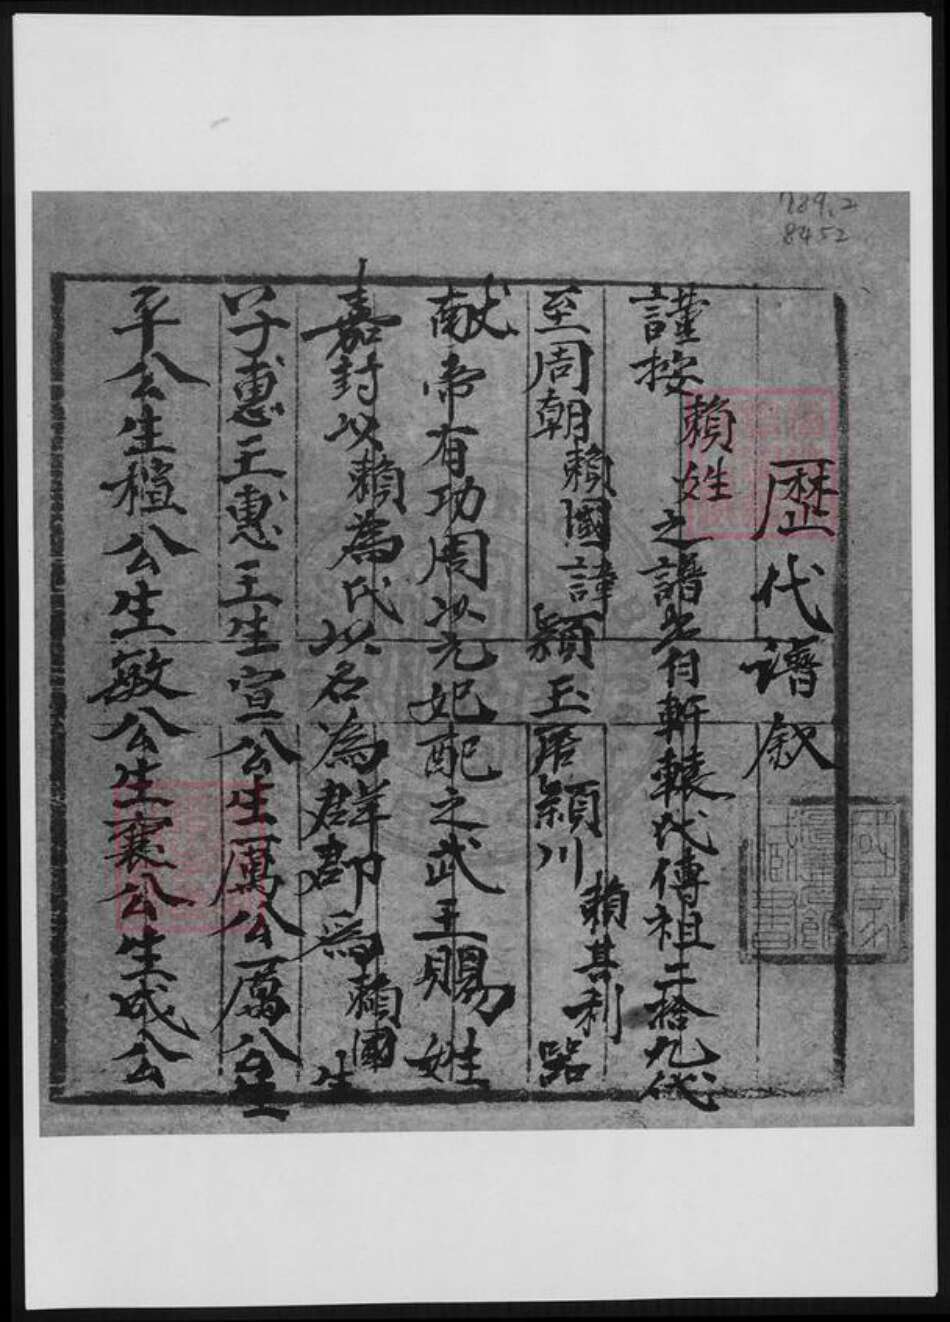 789.2
8452
歷代譜叙
謹按賴姓之譜先自軒轅代傳祖二拾九代
至周朝賴國諱穎玉居潁川賴甚利
献帝有功周以元妃配之武王賜姓
嘉封以賴為氏以名為群郡為賴國生
子惠王惠王生宣公生厲公厲公生
平公生桓公生敬公生襄公生成公